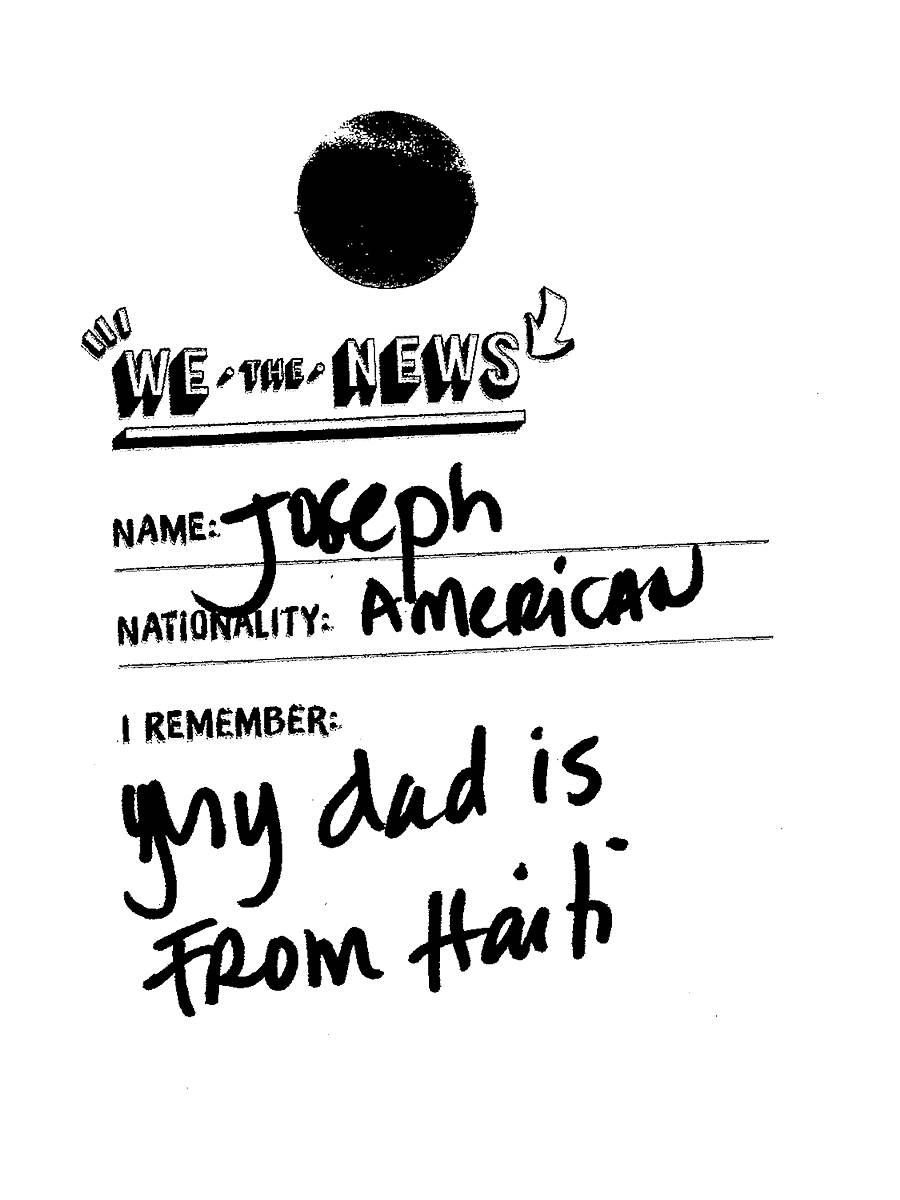 WE THE NEWS
NAME: Joseph
NATIONALITY: AMERICAN
I REMEMBER:
My dad is
FROM Haiti